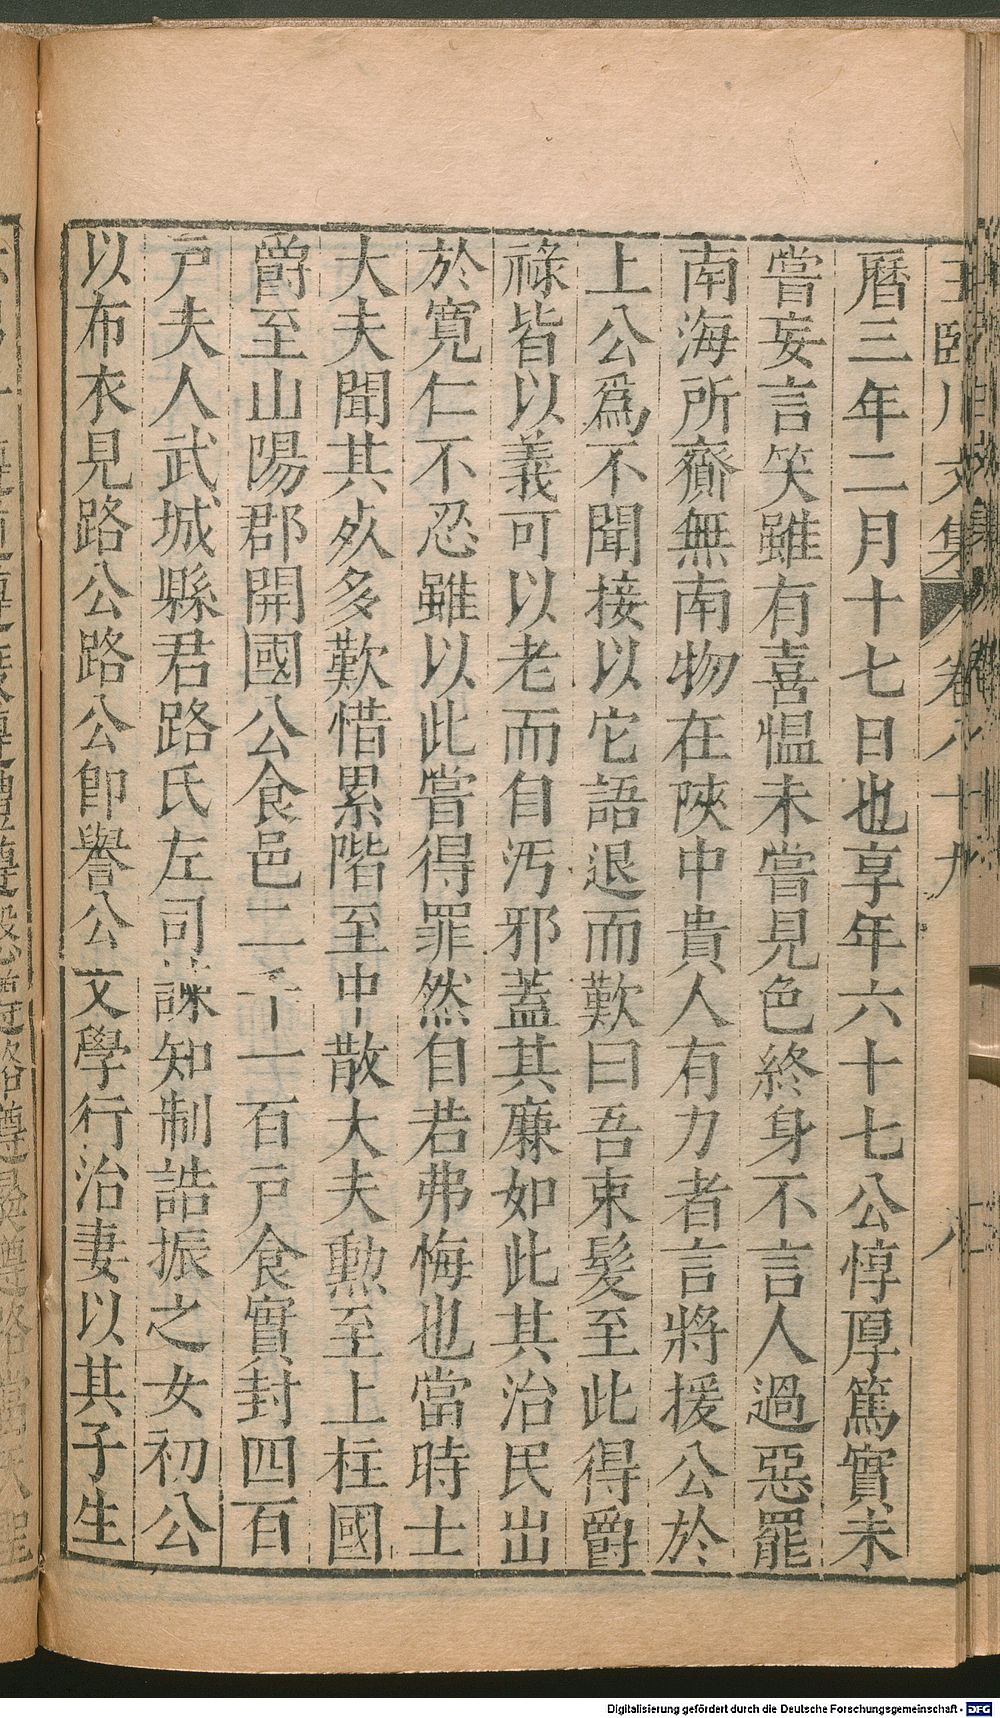 王臨川文集 卷八十九 八
曆三年二月十七日也享年六十七公惇厚篤實未
嘗妄言笑雖有喜愠未嘗見色終身不言人過惡罷
南海所齎無南物在陝中貴人有力者言將援公於
上公爲不聞接以它語退而歎曰吾束髮至此得爵
祿皆以義可以老而自汚邪蓋其廉如此其治民出
於寬仁不忍雖以此嘗得罪然自若弗悔也當時士
大夫聞其歿多歎惜累階至中散大夫勲至上柱國
爵至山陽郡開國公食邑二千一百戸食實封四百
戸夫人武城縣君路氏左司諫知制誥振之女初公
以布衣見路公路公卽譽公文學行治妻以其子生
Digitalisierung gefördert durch die Deutsche Forschungsgemeinschaft - DFG